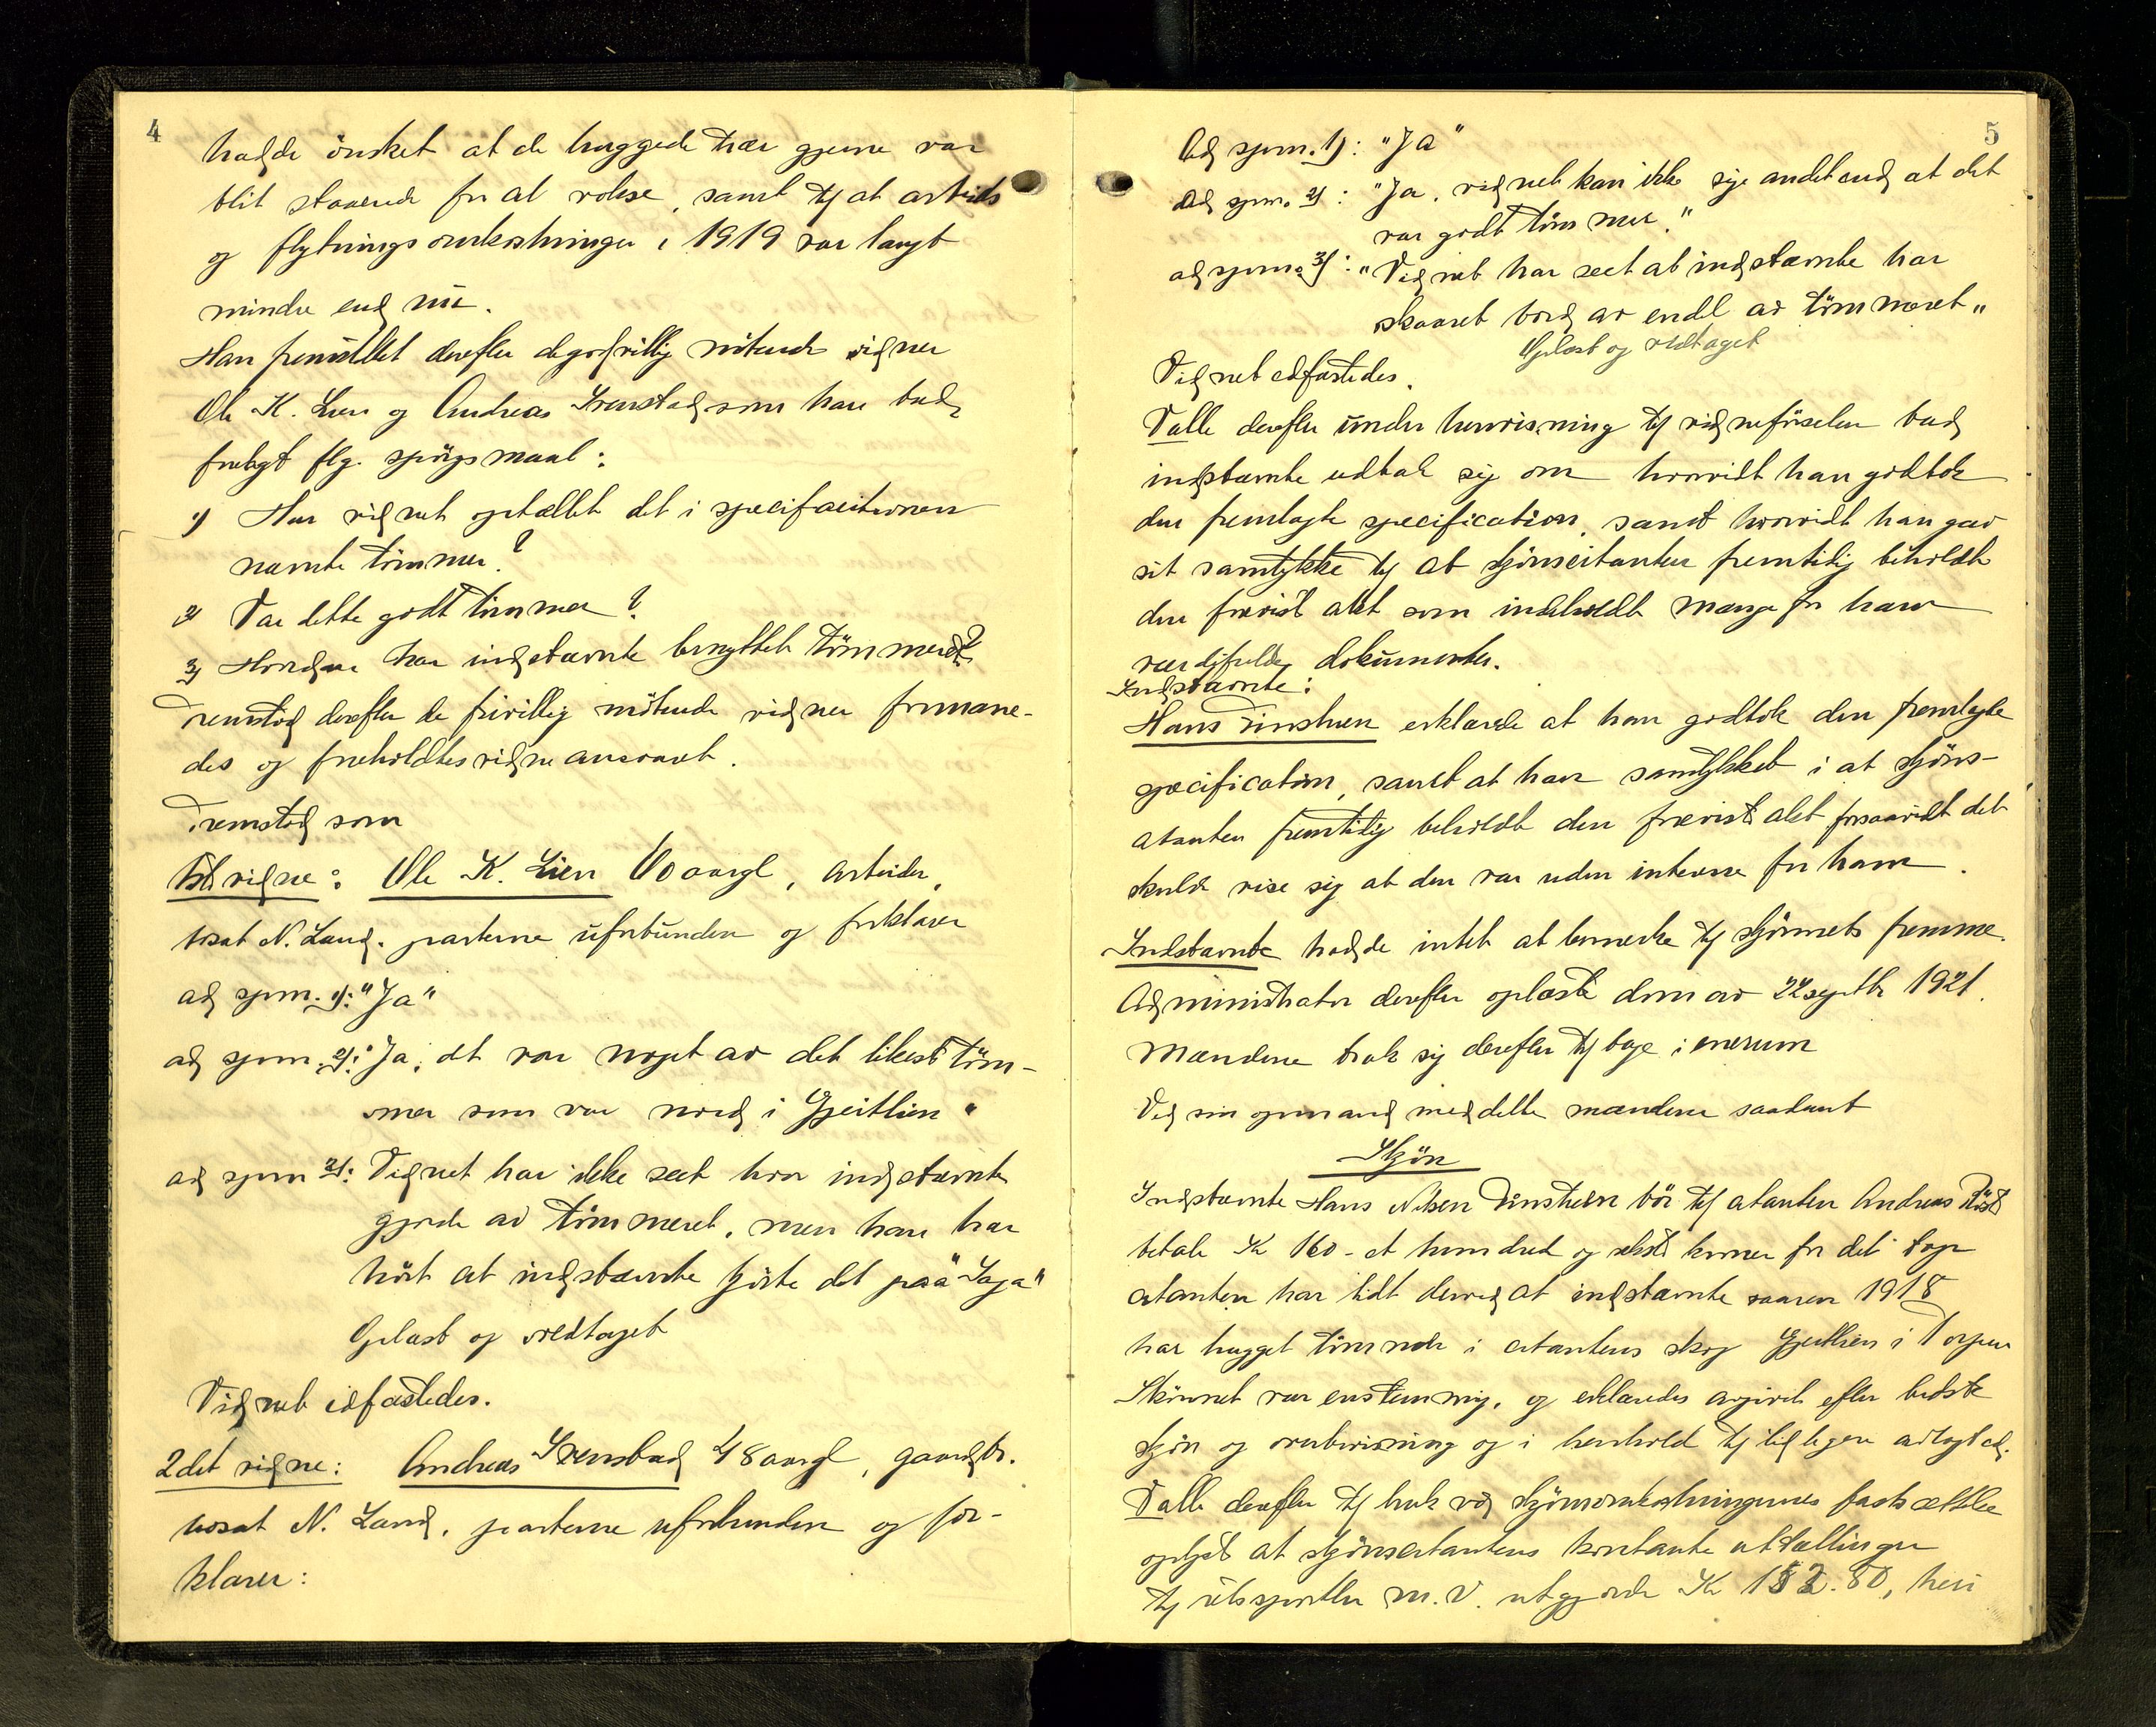 4
hadde önsket at de huggede trær gjerne var
blit staaende for at vokse, samt til at arbeids
og flytningsomkostninger i 1919 var langt
mindre end nu.
Han fremstillet derefter de godvillig mötende vidner
Ole K. Lien og Andreas Svenstad som han bad
forelagt flg. spörgsmaal:
1) Har vidnet optællet det i specifacitionen
nævnte tömmer?
2) Var dette godt tömmer?
3) Hvordan har indstævnte benyttet tömmeret?
Fremstod derefter de frivillig mötende vidner formane-
des og foreholdtes vidneansvaret.
Fremstod som
1ste vidne: Ole K. Lien 60 aargl, arbeider,
bosat N. Land. parterne uforbunden og forklarer
ad spm. 1): "Ja"
ad spm. 2): "Ja, det var noget av det likeste töm-
mer som var nord i Gjeitlien"
ad spm 3): Vidnet har ikke seet hva indstævnte
gjorde av tömmeret, men han har
hört at indstævnte kjörte det paa "Saga"
Oplæst og vedtaget
Vidnet edfæstedes.
2det vidne: Andreas Svenstad 48 aargl, gaardbr.
bosat N. Land, parterne uforbunden og for-
klarer:
5
Ad spm. 1): "Ja"
Ad spm. 2): "Ja, vidnet kan ikke sige andet end at det
var godt tömmer."
ad spm. 3): "Vidnet har seet at indstævnte har
skaaret bord av endel av tömmeret"
Oplæst og vedtaget
Vidnet edfæstedes.
Valle derefter under henvisning til vidneförselen bad
indstævnte udtale sig om hvorvidt han godtok
den fremlagte specification, samt hvorvidt han gav
sit samtykke til at skjönscitanten fremtidig beholdt
den forevist alet som indeholdt mange for ham
værdifulde dokumenter.
Indstævnte:
Hans Finstuen erklærte at han godtok den fremlagte
specification, samt at han samtykket i at skjöns-
citanten fremtidig beholdt den forevist alet forsaavidt det
skulde vise sig at den var uden interesse for ham.
Indstævnte hadde intet at bemerke til skjönnets fremme.
Administrator derefter oplæste dom av 22 septbr 1921.
Mændene trak sig derefter tilbage i enerum
Ved sin opmand meddelte mændene saadant
Skjön
Indstævnte Hans Nilsen Finstuen bör til citanten Andreas Röst
betale Kr 160 - et hundred og seksti kroner for det tap
citanten har lidt derved at indstævnte vaaren 1918
har hugget tömmer i citantens skog Gjeitlien i Torpen
Skönnet var enstemmig, og erklæredes avgivet efter bedste
skjön og overbevisning og i henhold til tidligere avlagt ed.
Valle derefter til bruk ved skjönsomkostningernes fastsættelse
oplyst at skjönscitantens kontante uttællinger
til retssportler m.v. utgjorde Kr 152.80, heri